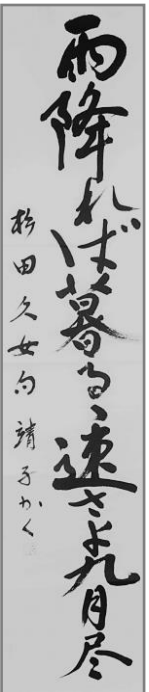 雨降れば暮るゝ速さよ九月尽
杉田久女句 靖子かく